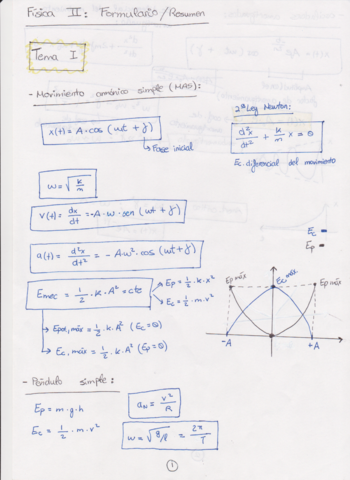 Física II: Formulario/Resumen
Tema I
- Movimiento armónico simple (MAS):
x(t) = A·cos (ωt + ɣ)
Fase inicial
2ª Ley Newton:
d²x/dt² + k/m x = 0
Ec. diferencial del movimiento
ω = √(k/m)
v(t) = dx/dt = -A·ω·sen (ωt + ɣ)
a(t) = d²x/dt² = -Aω²·cos (ωt + ɣ)
Emec = 1/2·k·A² = cte
Ep = 1/2·k·x²
Ec = 1/2·m·v²
Epot, máx = 1/2·k·A² (Ec = 0)
Ec, máx = 1/2·k·A² (Ep = 0)
Ec
Ep
Ep máx
Ec máx
Ep máx
-A
+A
- Péndulo simple:
Ep = m·g·h
aN = v²/R
Ec = 1/2·m·v²
ω = √(g/l) = 2π/T
1